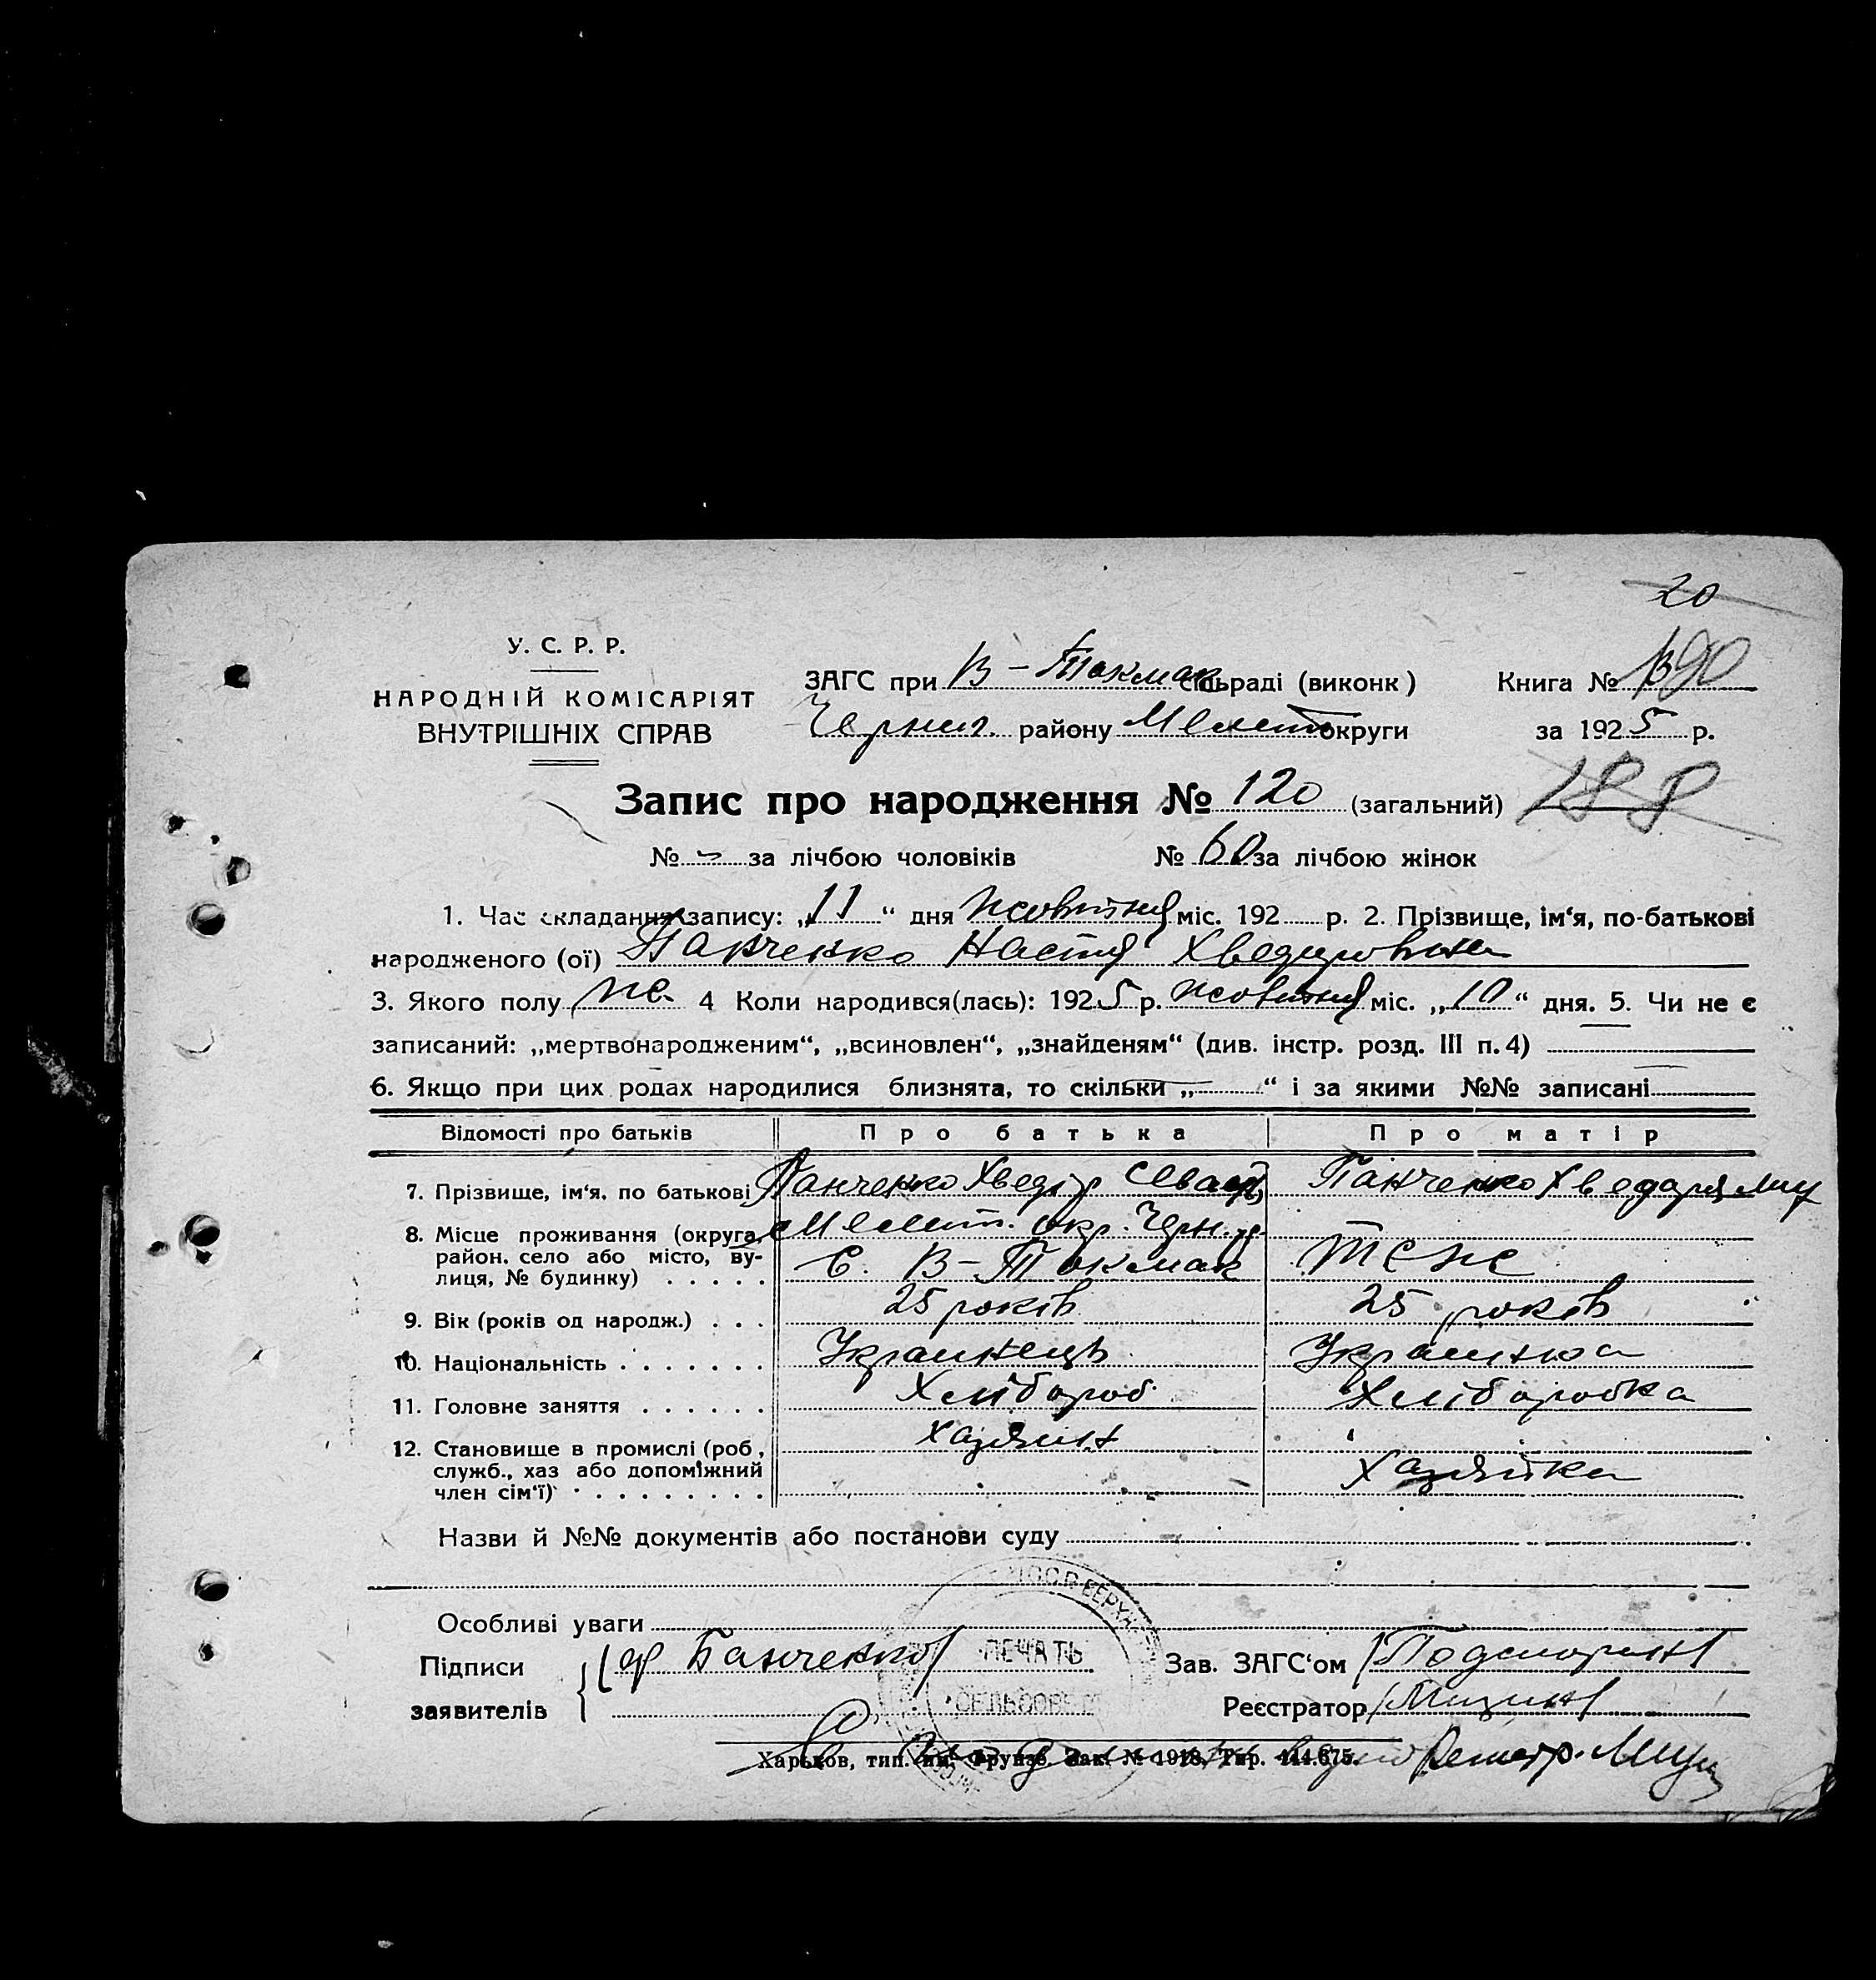 20
У. С. Р. Р.
НАРОДНІЙ КОМІСАРІЯТ
ВНУТРІШНІХ СПРАВ
ЗАГС при В-Токмак сільраді (виконк)
Черниг. району Мелит округи
Книга №
за 1925 р.
Запис про народження № 120 (загальний)
188
№ - за лічбою чоловіків № 60 за лічбою жінок
1. Час складання запису: „11“ дня жовтня міс. 192 р. 2. Прізвище, ім‘я, по-батькові
народженого (ої) Панченко Настя Хведоровна
3. Якого полу же. 4 Коли народився(лась): 1925 р. жовтня міс. „10“ дня. 5. Чи не є
записаний: „мертвонародженим“, „всиновлен“, „знайденям“ (див. інстр. розд. III п. 4)
6. Якщо при цих родах народилися близнята, то скільки „ “ і за якими №№ записані
Відомості про батьків Про батька Про матір
7. Прізвище, ім‘я, по батькові Панченко Хведір Севаст Панченко
8. Місце проживання (округа, район, село або місто, вулиця, № будинку)
Мелит. окр. Черн. р.
с. В-Токмак теже
9. Вік (років од народж.) . . . 25 років 25 років
10. Національність . . . . . . . Украинець Украинка
11. Головне заняття . . . . . . Хлібороб Хліборобка
12. Становище в промислі (роб, служб., хаз або допоміжний член сім‘ї) . . . . . . . . . Хазяин Хазяйка
Назви й №№ документів або постанови суду
Особливі уваги
Підписи заявителів гр Банченко
ПЕЧАТЬ
СЕЛЬСОВЕТ
Зав. ЗАГС‘ом
Реєстратор
Харьков, тип. им. Фрунзе. Зак. № 1918, Тир. 144.675.